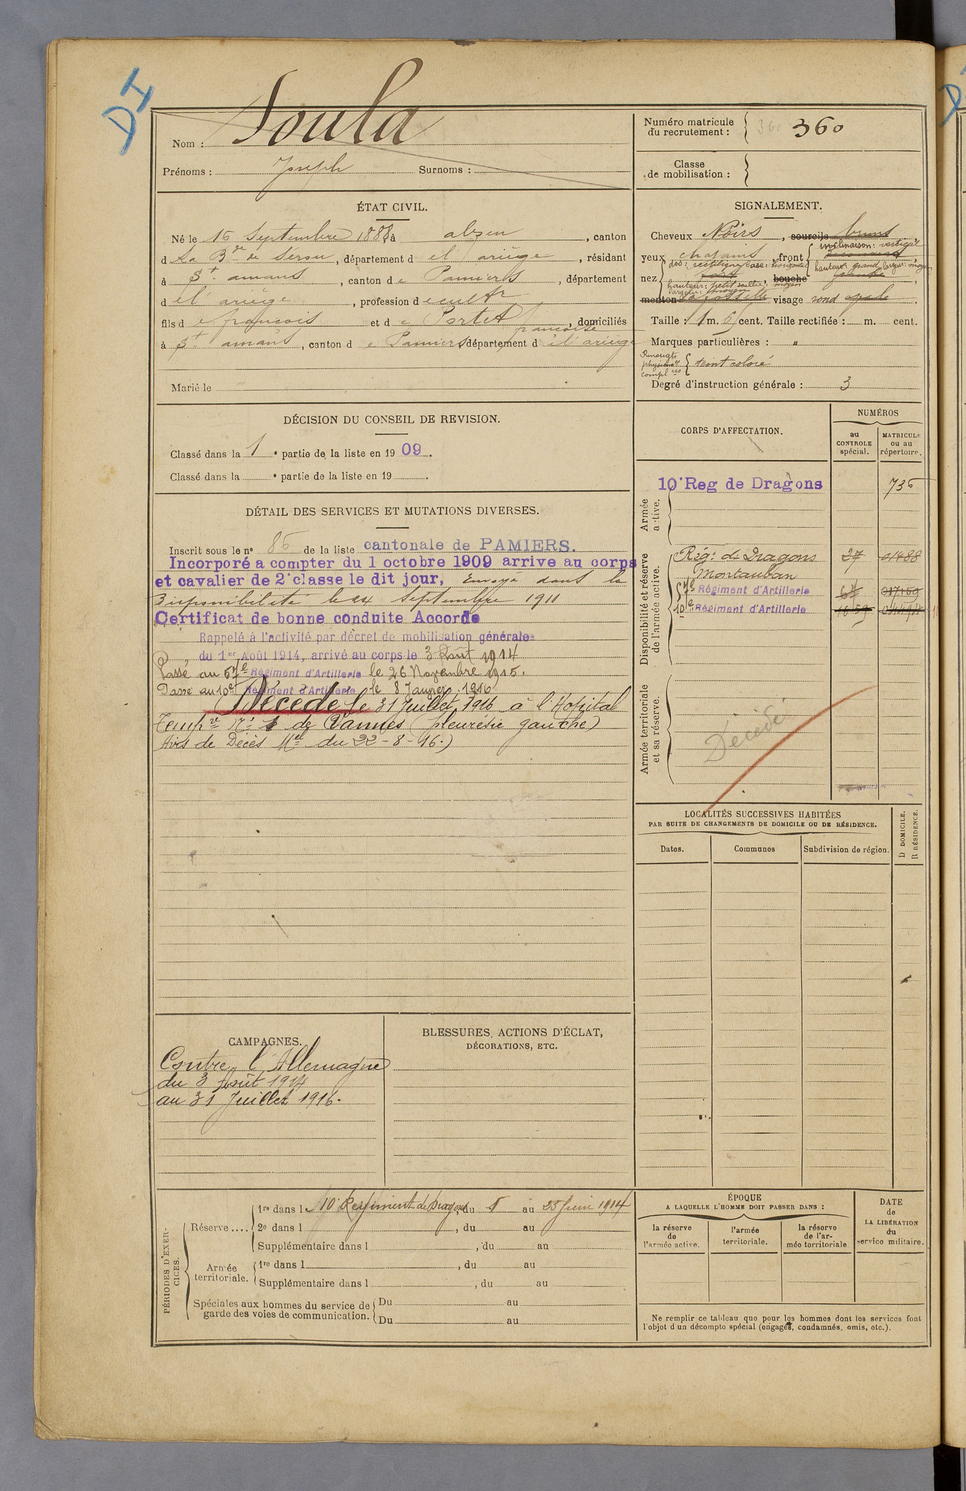 DI
Nom : Soula
Prénoms : Joseph Surnoms :
ÉTAT CIVIL.
Né le 15 Septembre 1888 à alzen, canton
d La B de de Sérou, département d el ariège, résidant
à St amans, canton d e Pamiers, département
d el ariège, profession d e cultr
fils d e françois et d e Portet françoise, domiciliés
à St amans, canton d e Pamiers département d el ariège
Marié le
DÉCISION DU CONSEIL DE REVISION.
Classé dans la 1 e partie de la liste en 1909.
Classé dans la e partie de la liste en 19 .
DÉTAIL DES SERVICES ET MUTATIONS DIVERSES.
Inscrit sous le n° 85 de la liste cantonale de PAMIERS.
Incorporé a compter du 1 octobre 1909 arrive au corps
et cavalier de 2e classe le dit jour, Envoyé dans la
Disponibilité le 24 Septembre 1911
Certificat de bonne conduite Accordé
Rappelé à l'activité par décret de mobilisation générale
du 1er Août 1914, arrivé au corps le 3 Août 1914
Passé au 57e Régiment d'Artillerie le 26 Novembre 1915.
Passé au 10e Régiment d'Artillerie le 8 Janvier 1916
Décédé le 31 Juillet 1916 à l'Hopital
Tempre N° 1 de Vannes (pleurésie gauche)
Avis de Décès Mel du 22-8-16.)
CAMPAGNES.
Contre l'Allemagne
du 3 Août 1914
au 31 Juillet 1916.
BLESSURES, ACTIONS D'ÉCLAT,
DÉCORATIONS, ETC.
PÉRIODES D'EXERCICES.
Réserve .... 1re dans le 10e Régiment de Dragons du 8 au 25 Juin 1914
2e dans l , du au
Supplémentaire dans l , du au
Armée territoriale. 1re dans l , du au
Supplémentaire dans l , du au
Spéciales aux hommes du service de garde des voies de communication. Du au
Du au
Numéro matricule du recrutement : 360
Classe de mobilisation :
SIGNALEMENT.
Cheveux Noirs, sourcils bruns
yeux chatains, front inclinaison: verticale
nez dos: rectiligne base: hauteur: grand largeur: moy
hauteur: petit saillie: moyen bouche
largeur: moyen
menton visage rond ovale
Taille : 1 m. 6 cent. Taille rectifiée : m. cent.
Marques particulières : "
Renseigts physiont complres teint coloré
Degré d'instruction générale : 3
CORPS D'AFFECTATION.
NUMÉROS
au CONTROLE spécial.
MATRICULE ou au répertoire.
Armée active.
10e Reg de Dragons 735
Disponibilité et réserve de l'armée active.
Rég. de Dragons 27 01488
Montauban
57e Régiment d'Artillerie
10e Régiment d'Artillerie
Armée territoriale et sa réserve.
Décédé
LOCALITÉS SUCCESSIVES HABITÉES
PAR SUITE DE CHANGEMENTS DE DOMICILE OU DE RÉSIDENCE.
Dates.
Communes
Subdivision de région.
D DOMICILE.
R RÉSIDENCE.
ÉPOQUE
A LAQUELLE L'HOMME DOIT PASSER DANS :
la réserve de l'armée active.
l'armée territoriale.
la réserve de l'armée territoriale
DATE de LA LIBÉRATION du service militaire.
Ne remplir ce tableau que pour les hommes dont les services font
l'objet d'un décompte spécial (engagés, condamnés, omis, etc.).